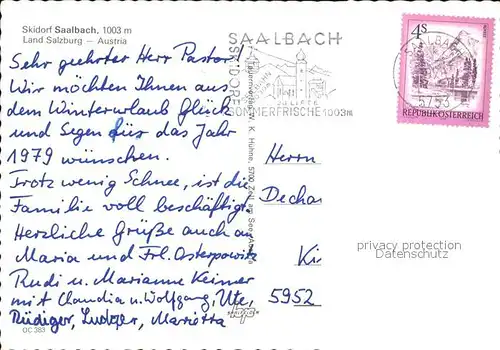 Skidorf Saalbach, 1003 m
Land Salzburg – Austria
Sehr geehrter Herr Pastor!
Wir möchten Ihnen aus
dem Winterurlaub Glück
und Segen für das Jahr
1979 wünschen.
Trotz wenig Schnee, ist die
Familie voll beschäftigt.
Herzliche Grüße auch an
Maria und Frl. Osterpowitz
Rudi u. Marianne Keimer
mit Claudia u. Wolfgang, Ute,
Rüdiger, Ludger, Marietta
OC 383
SAALBACH
SKIDORF
SOMMERFRISCHE 1003m
4S
SAALBACH
5753
REPUBLIK ÖSTERREICH
Herrn
Dechan
Ki
5952
privacy protection
Datenschutz